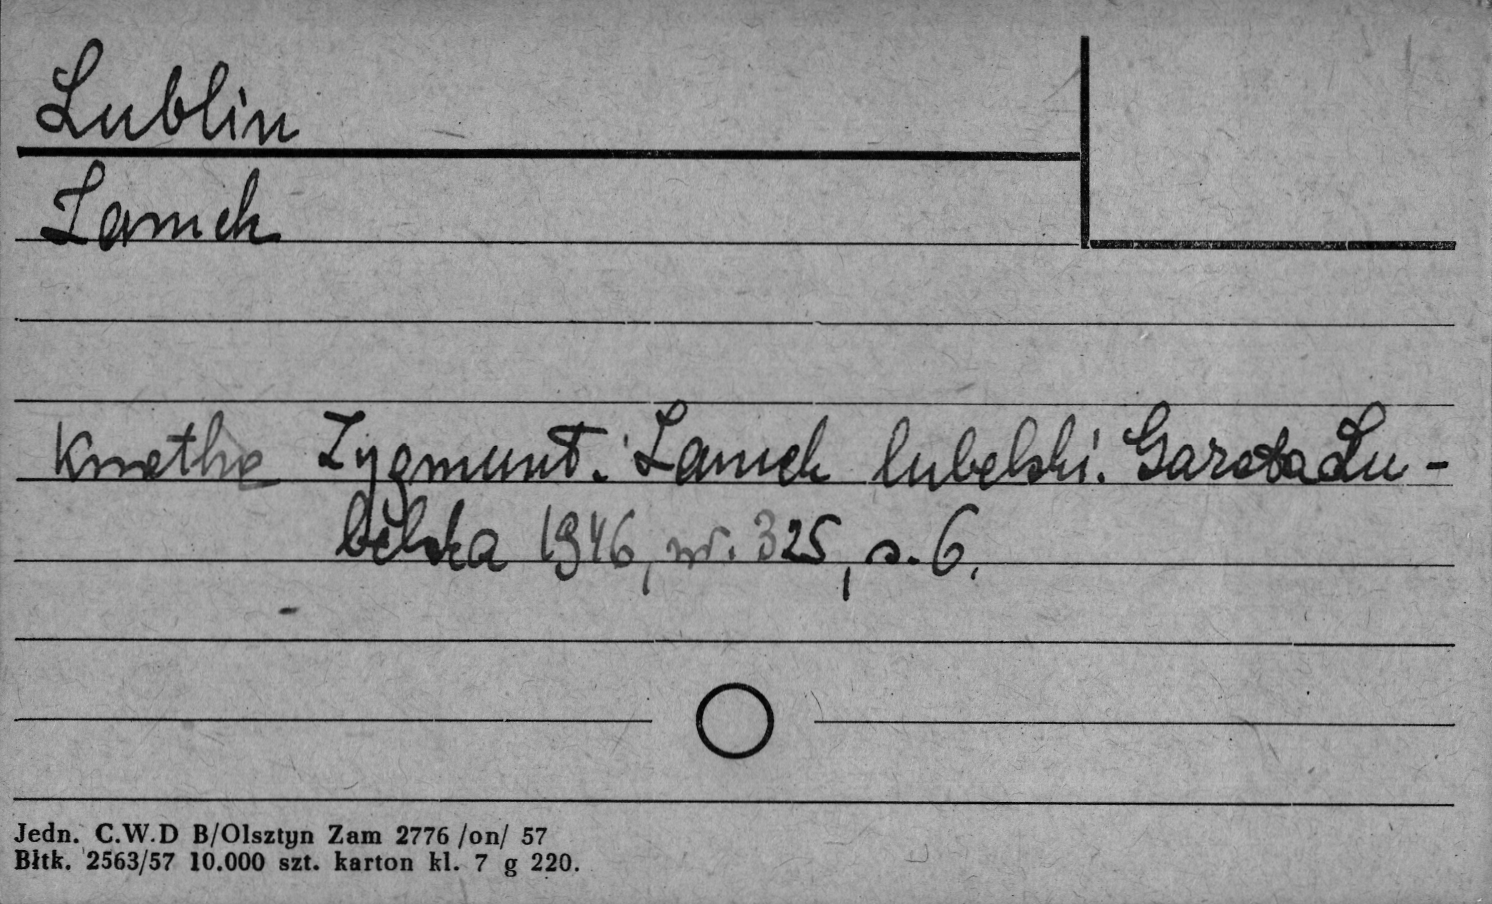 Lublin
Zamek
Knothe Zygmunt. Zamek lubelski. Gazeta Lu-
belska 1946, nr. 325, s. 6.
Jedn. C.W.D B/Olsztyn Zam 2776 /on/ 57
Błtk. 2563/57 10.000 szt. karton kl. 7 g 220.